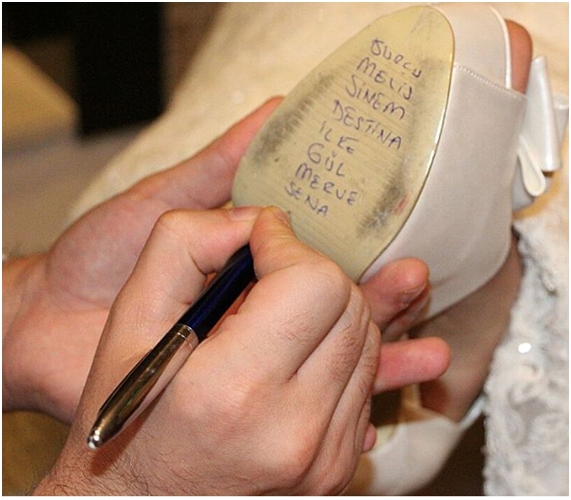 BURCU
MELİS
SİNEM
DESTİNA
İLKE
GÜL
MERVE
SENA